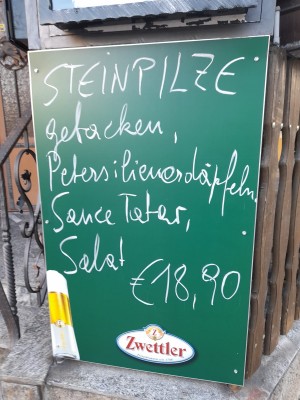 STEINPILZE
gebacken,
Petersilienerdäpfeln.
Sauce Tatar,
Salat
€18,90
Zwettler